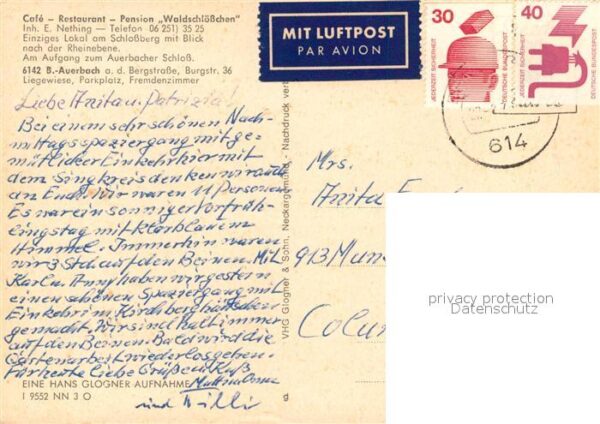 Café – Restaurant – Pension „Waldschlößchen"
Inh. E. Nething – Telefon 06 251) 35 25
Einziges Lokal am Schloßberg mit Blick
nach der Rheinebene.
Am Aufgang zum Auerbacher Schloß.
6142 B.-Auerbach a. d. Bergstraße, Burgstr. 36
Liegewiese, Parkplatz, Fremdenzimmer
Liebe Anita u. Patrizia!
Bei einem sehr schönen Nach-
mittagsspaziergang mit ge-
mütlicher Einkehr hier mit
dem Singkreis denken wir auch
an Euch. Wir waren 11 Personen
Es war ein sonniger Vorfrüh-
lingstag mit klarblauem
Himmel. Immerhin waren
wir 3 Std. auf den Beinen. Mit
Karl u. Anny haben wir gestern
einen schönen Spaziergang mit
Einkehr im Kirchberghäuschen
gemacht. Wir sind halt immer
auf den Beinen. Bald wird die
Gartenarbeit wieder losgehen.
Für heute liebe Grüße und Kuß
Mutti Oma
und Willi
EINE HANS GLOGNER AUFNAHME
I 9552 NN 3 O
VHG Glogner & Sohn, Neckargemünd - Nachdruck verb
MIT LUFTPOST
PAR AVION
30
JEDERZEIT SICHERHEIT
DEUTSCHE BUNDESPOST
40
JEDERZEIT SICHERHEIT
DEUTSCHE BUNDESPOST
614
Mrs.
Anita
913 Mun
Colu
privacy protection
Datenschutz